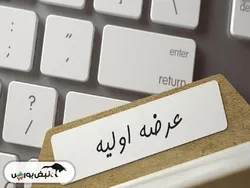 enter
return
عرضه اولیه
نبض بورس